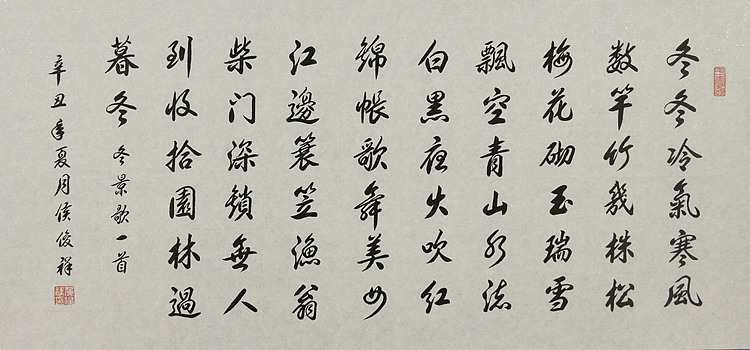 冬冬冷氣寒風
数竿竹幾株松
梅花砌玉瑞雪
飄空青山
白黑夜火吹紅
錦帳歌舞美女
江邊蓑笠漁翁
柴门深鎖無人
到收拾園林過
暮冬 冬景歌一首
辛丑年夏月侯俊祥